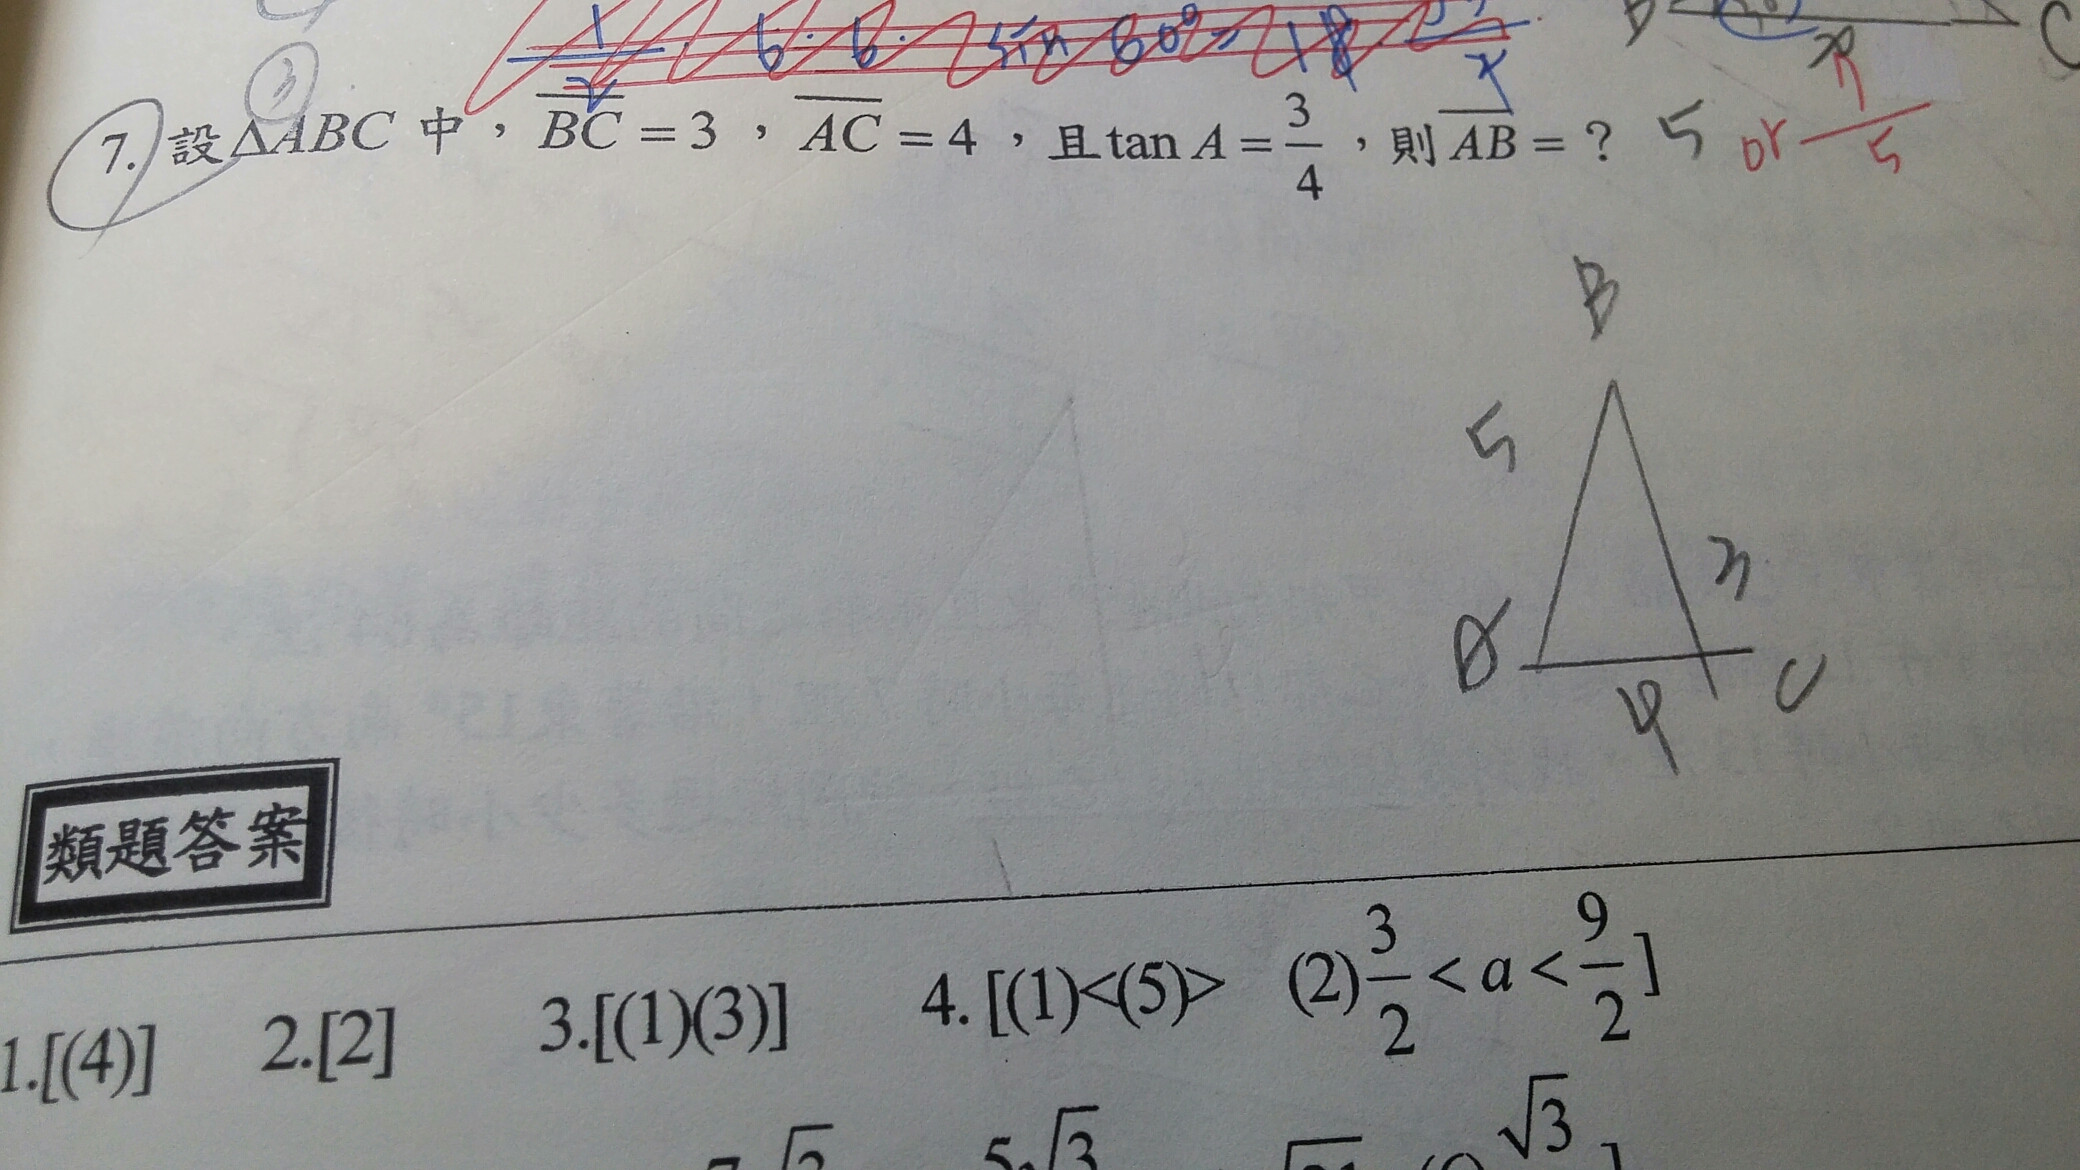 1/2 · 6 · 6 · sin 60° = 18
B x C
7. 設ΔABC 中，BC = 3，AC = 4，且 tan A = 3/4，則 AB = ？ 5 or 7/5
(3)
B
5
3
A
4
C
類題答案
1.[(4)] 2.[2] 3.[(1)(3)] 4. [(1)<(5)> (2) 3/2 < a < 9/2 ]
5√3 √3 ]